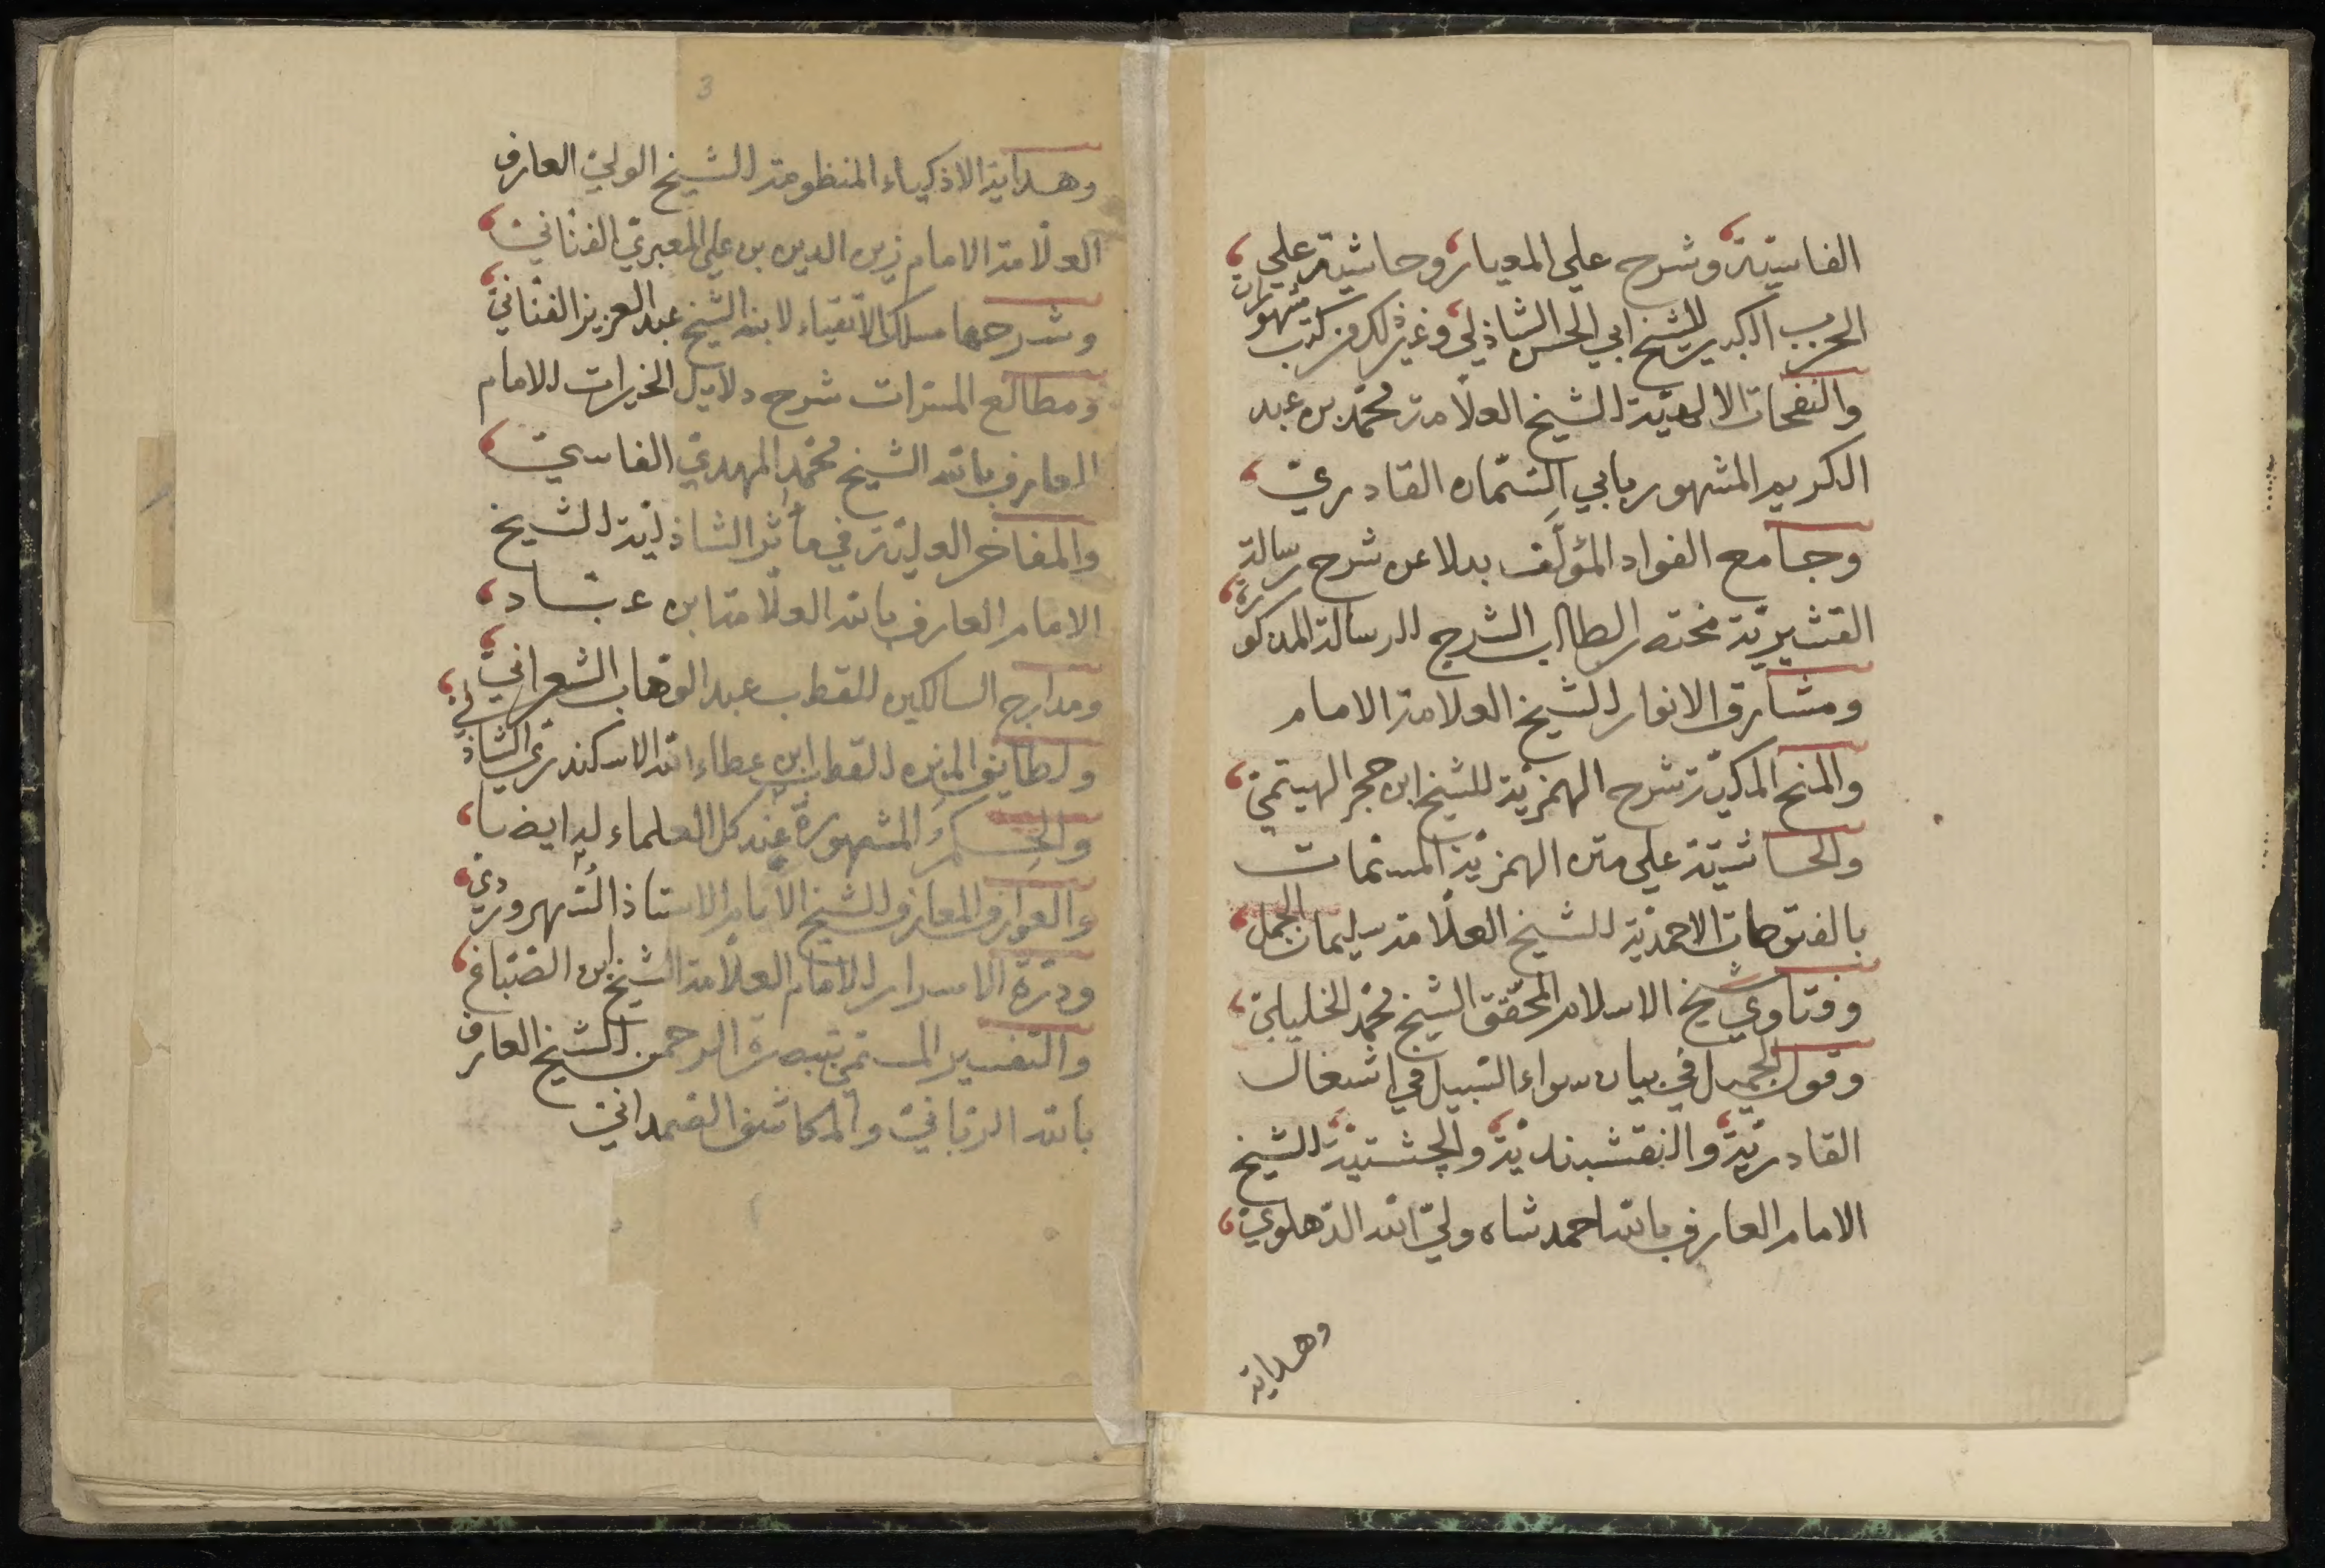 الفاسيّة وشرح علي المعيار وحاشية علي
الحزب الكبير للشيخ ابي الحسن الشاذلي وغير ذلك من كتب مشهورات
والنفحات الالهيّة للشيخ العلّامة محمّد بن عبد
الكريم المشهور بابي السّمان القادريّ
وجامع الفواد المؤلّف بدلا عن شرح رسالة
القشيريّة مختصر لطالب الشرح للرسالة المذكورة
ومشارق الانوار للشيخ العلامة الامام
والمنح المكيّة شرح الهمزيّة للشيخ ابن حجر الهيتميّ
والحاشيّة علي متن الهمزيّة المسمّات
بالفتوحات الاحمديّة للشيخ العلّامة سليمان الجمل
وفتاوي شيخ الاسلام المحقّق الشيخ محمّد الخليليّ
وقول الجميل في بيان سواء السّبيل في اشغال
القادريّة والنقشبنديّة والچشتيّة للشيخ
الامام العارف بالله احمد شاه وليّ الله الدّهلويّ
وهداية
3
وهداية الاذكياء المنظومة للشيخ الوليّ العارف
العلّامة الامام زين الدين بن علي المعبريّ الفنّانيّ
وشرحها مسلك الاتقياء لابنه الشيخ عبد العزيز الفنّانيّ
ومطالع المسرّات شرح دلايل الخيرات للامام
العارف بالله الشيخ محمّد المهديّ الفاسيّ
والمفاخر العليّة في مأثر الشاذليّة للشيخ
الامام العارف بالله العلّامة ابن عبّاد
ومدارج السالكين للقطب عبد الوهّاب الشعرانيّ
ولطايف المنن للقطب ابن عطاء الله الاسكندريّ الشاذلي
والحِكم المشهورة عند كل العلماء له ايضا
والعوارف المعارف للشيخ الامام الاستاذ السُّهرورديّ
ودرّة الاسرار للامام العلّامة الشيخ ابن الصّبّاغ
والتفسير المسمّي تبصرة الرحمن للشيخ العارف
بالله الربّانيّ والمكاشف الصّمدانيّ